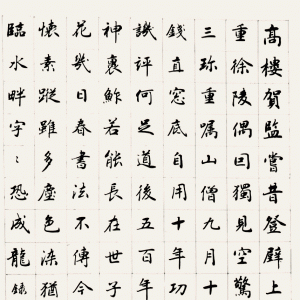 高樓賀監嘗昔登壁上
重徐陵偶回獨見空驚
三珎重嘱山僧九月十
錢直窓底自用十年功
譏評何足道後五百年
神若能長在世子
花幾日春書法不傳今
懐素蹤雖多塵色染猶
臨水畔字々恐成龍